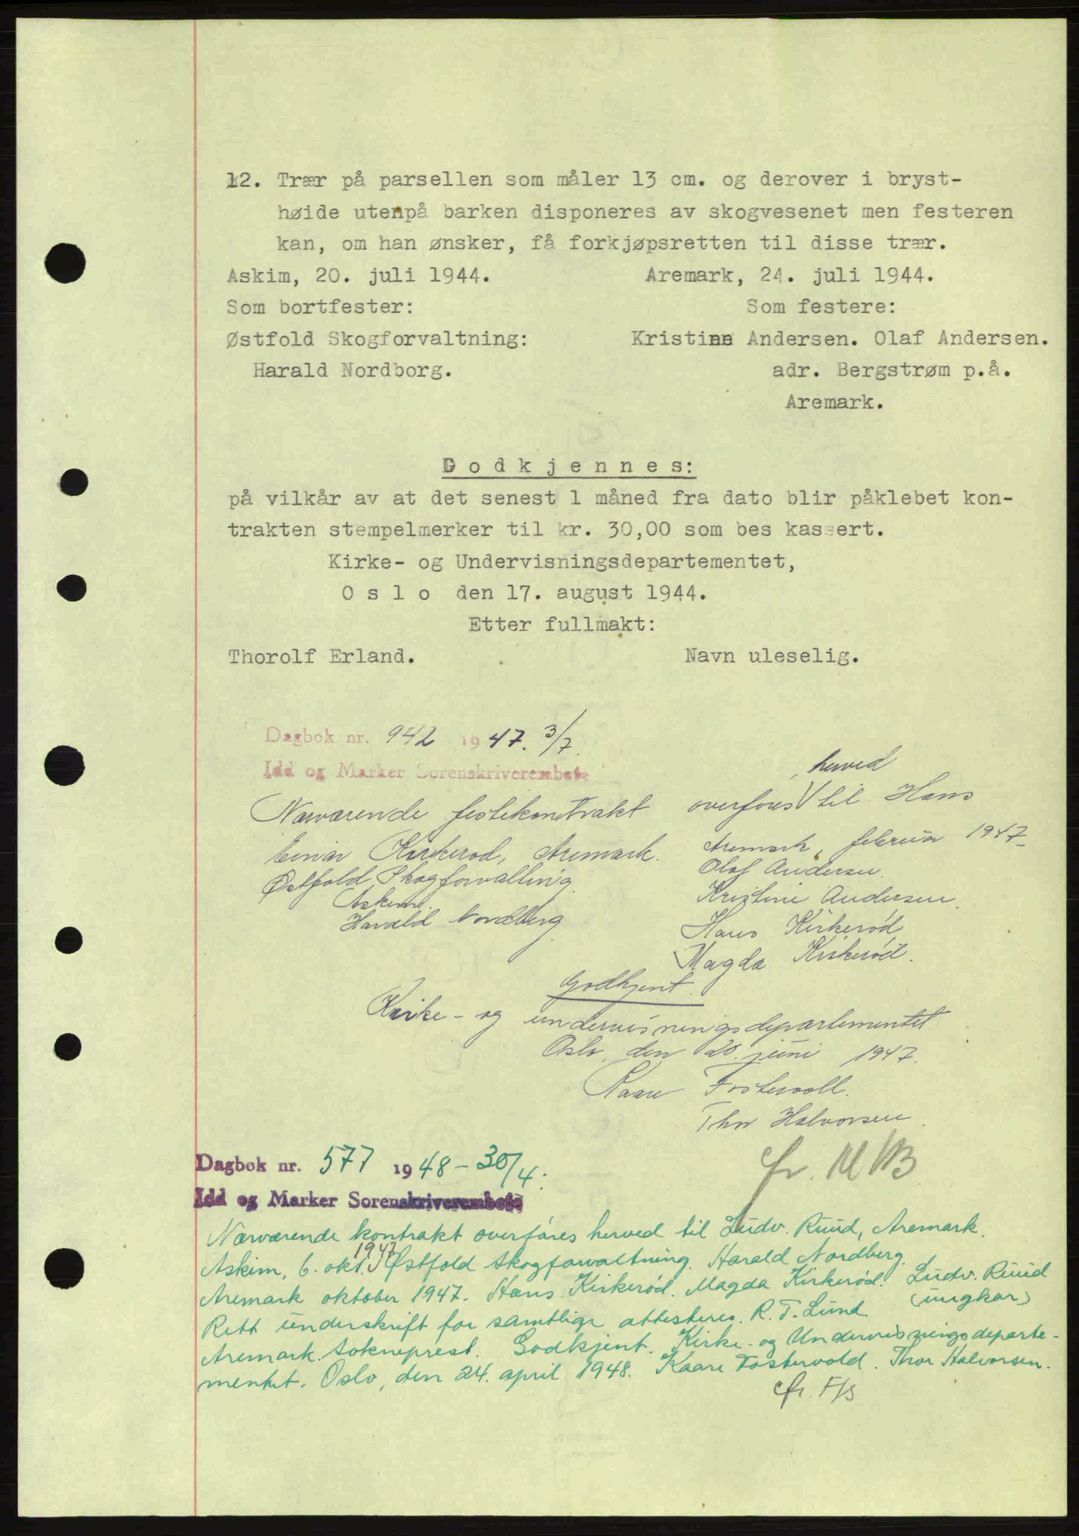 12. Trær på parsellen som måler 13 cm. og derover i bryst-
høide utenpå barken disponeres av skogvesenet men festeren
kan, om han ønsker, få forkjøpsretten til disse trær.
Askim, 20. juli 1944. Aremark, 24. juli 1944.
Som bortfester: Som festere:
Østfold Skogforvaltning: Kristine Andersen. Olaf Andersen.
Harald Nordborg. adr. Bergstrøm p.å.
Aremark.
Godkjennes:
på vilkår av at det senest 1 måned fra dato blir påklebet kon-
trakten stempelmerker til kr. 30,00 som bes kassert.
Kirke- og Undervisningsdepartementet,
Oslo den 17. august 1944.
Etter fullmakt:
Thorolf Erland. Navn uleselig.
Dagbok nr. 942 1947. 3/7.
Idd og Marker Sorenskriverembete
herved
Nærværende festekontrakt overføres til Hans
Einar Kirkerød, Aremark. Aremark, februar 1947
Østfold Skogforvaltning Olaf Andersen.
Askim. Kristine Andersen.
Harald Nordberg Hans Kirkerød
Magda Kirkerød.
Godkjent.
Kirke- og undervisningsdepartementet
Oslo, den 20. juni 1947.
Kaare Fostervoll.
Thor Halvorsen.
Dagbok nr. 577 1948 - 30/4.
Idd og Marker Sorenskriverembete
Nærværende kontrakt overføres herved til Ludv. Ruud, Aremark.
Askim, 6. okt. 1947 Østfold Skogforvaltning. Harald Nordberg.
Aremark oktober 1947. Hans Kirkerød. Magda Kirkerød. Ludv. Ruud
(ungkar)
Rett underskrift for samtlige attesteres. R. T. Lund
Aremark sokneprest. Godkjent. Kirke- og Undervisningsdeparte-
mentet. Oslo, den 24. april 1948. Kaare Fostervold. Thor Halvorsen.